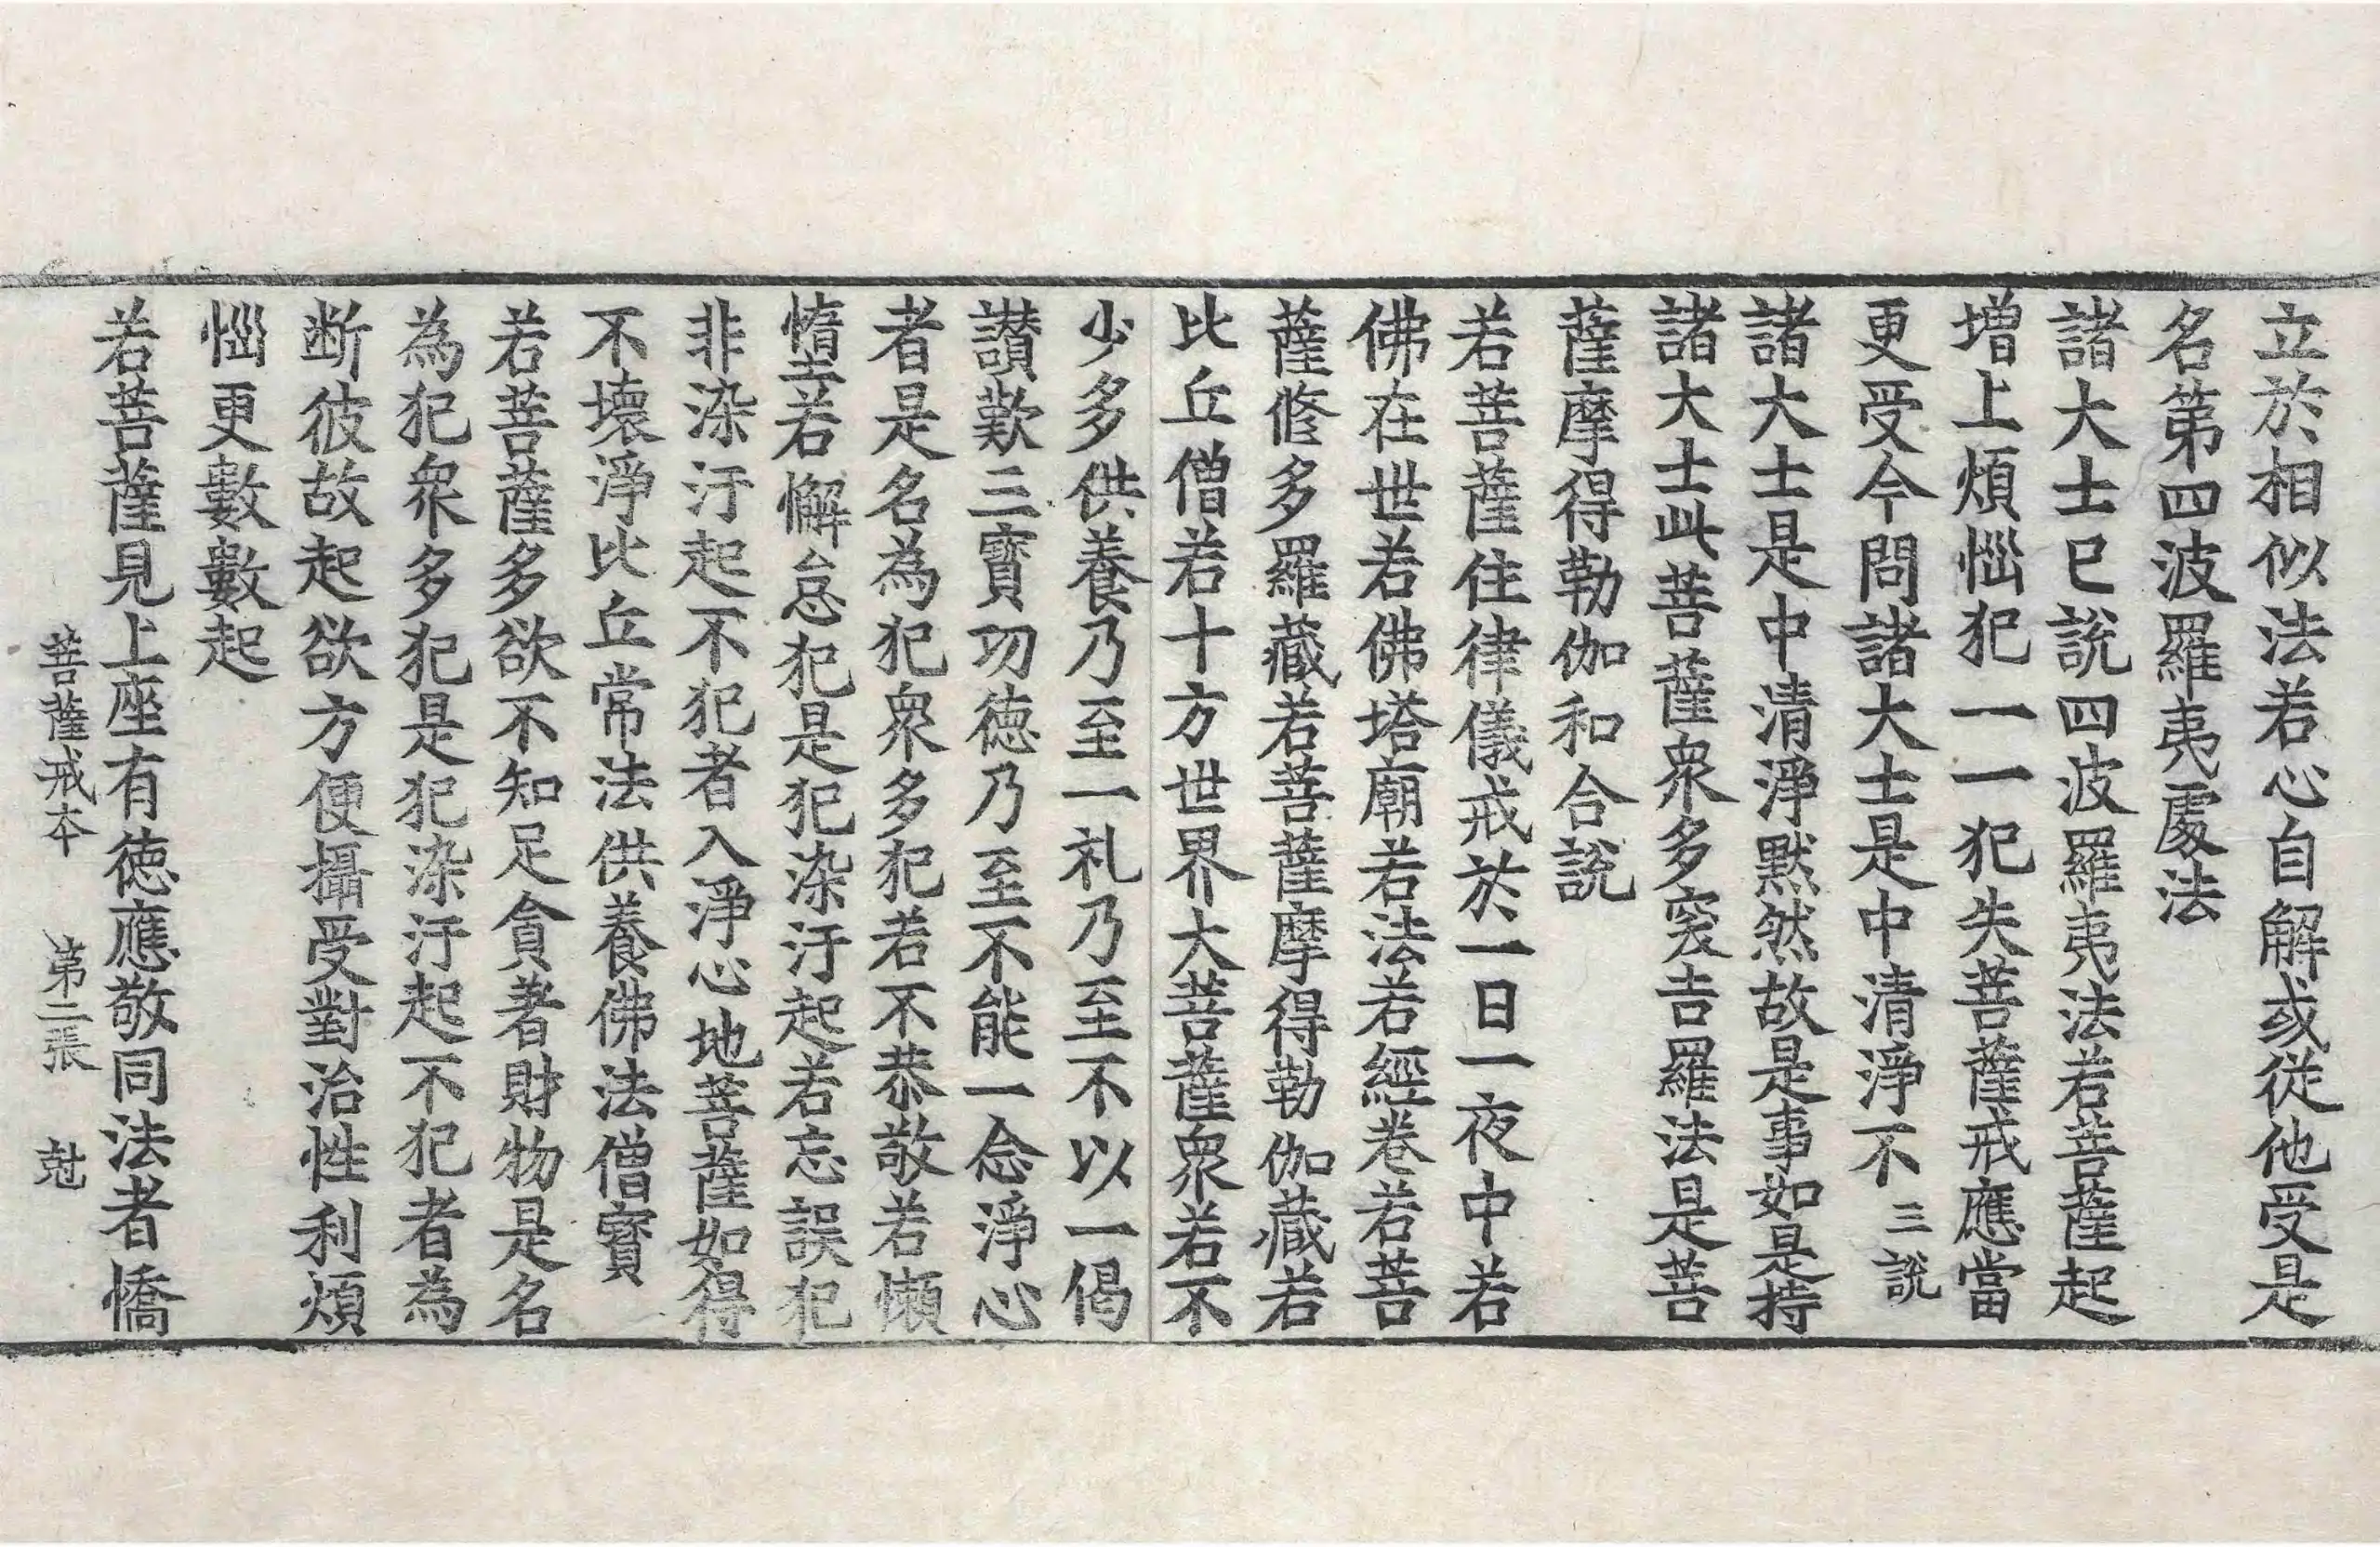 立於相似法若心自解或從他受是
名第四波羅夷處法
諸大士已說四波羅夷法若菩薩起
增上煩惱犯一一犯失菩薩戒應當
更受今問諸大士是中清淨不三說
諸大士是中清淨默然故是事如是持
諸大士此菩薩衆多突吉羅法是菩
薩摩得勒伽和合說
若菩薩住律儀戒於一日一夜中若
佛在世若佛塔廟若法若經卷若菩
薩修多羅藏若菩薩摩得勒伽藏若
比丘僧若十方世界大菩薩衆若不
少多供養乃至一礼乃至不以一偈
讃歎三寶功德乃至不能一念淨心
者是名為犯衆多犯若不恭敬若懶
惰若懈怠犯是犯染汙起若忘誤犯
非染汙起不犯者入淨心地菩薩如得
不壞淨比丘常法供養佛法僧寶
若菩薩多欲不知足貪著財物是名
為犯衆多犯是犯染汙起不犯者為
断彼故起欲方便攝受對治性利煩
惱更數數起
若菩薩見上座有德應敬同法者憍
菩薩戒本 第二張 尅